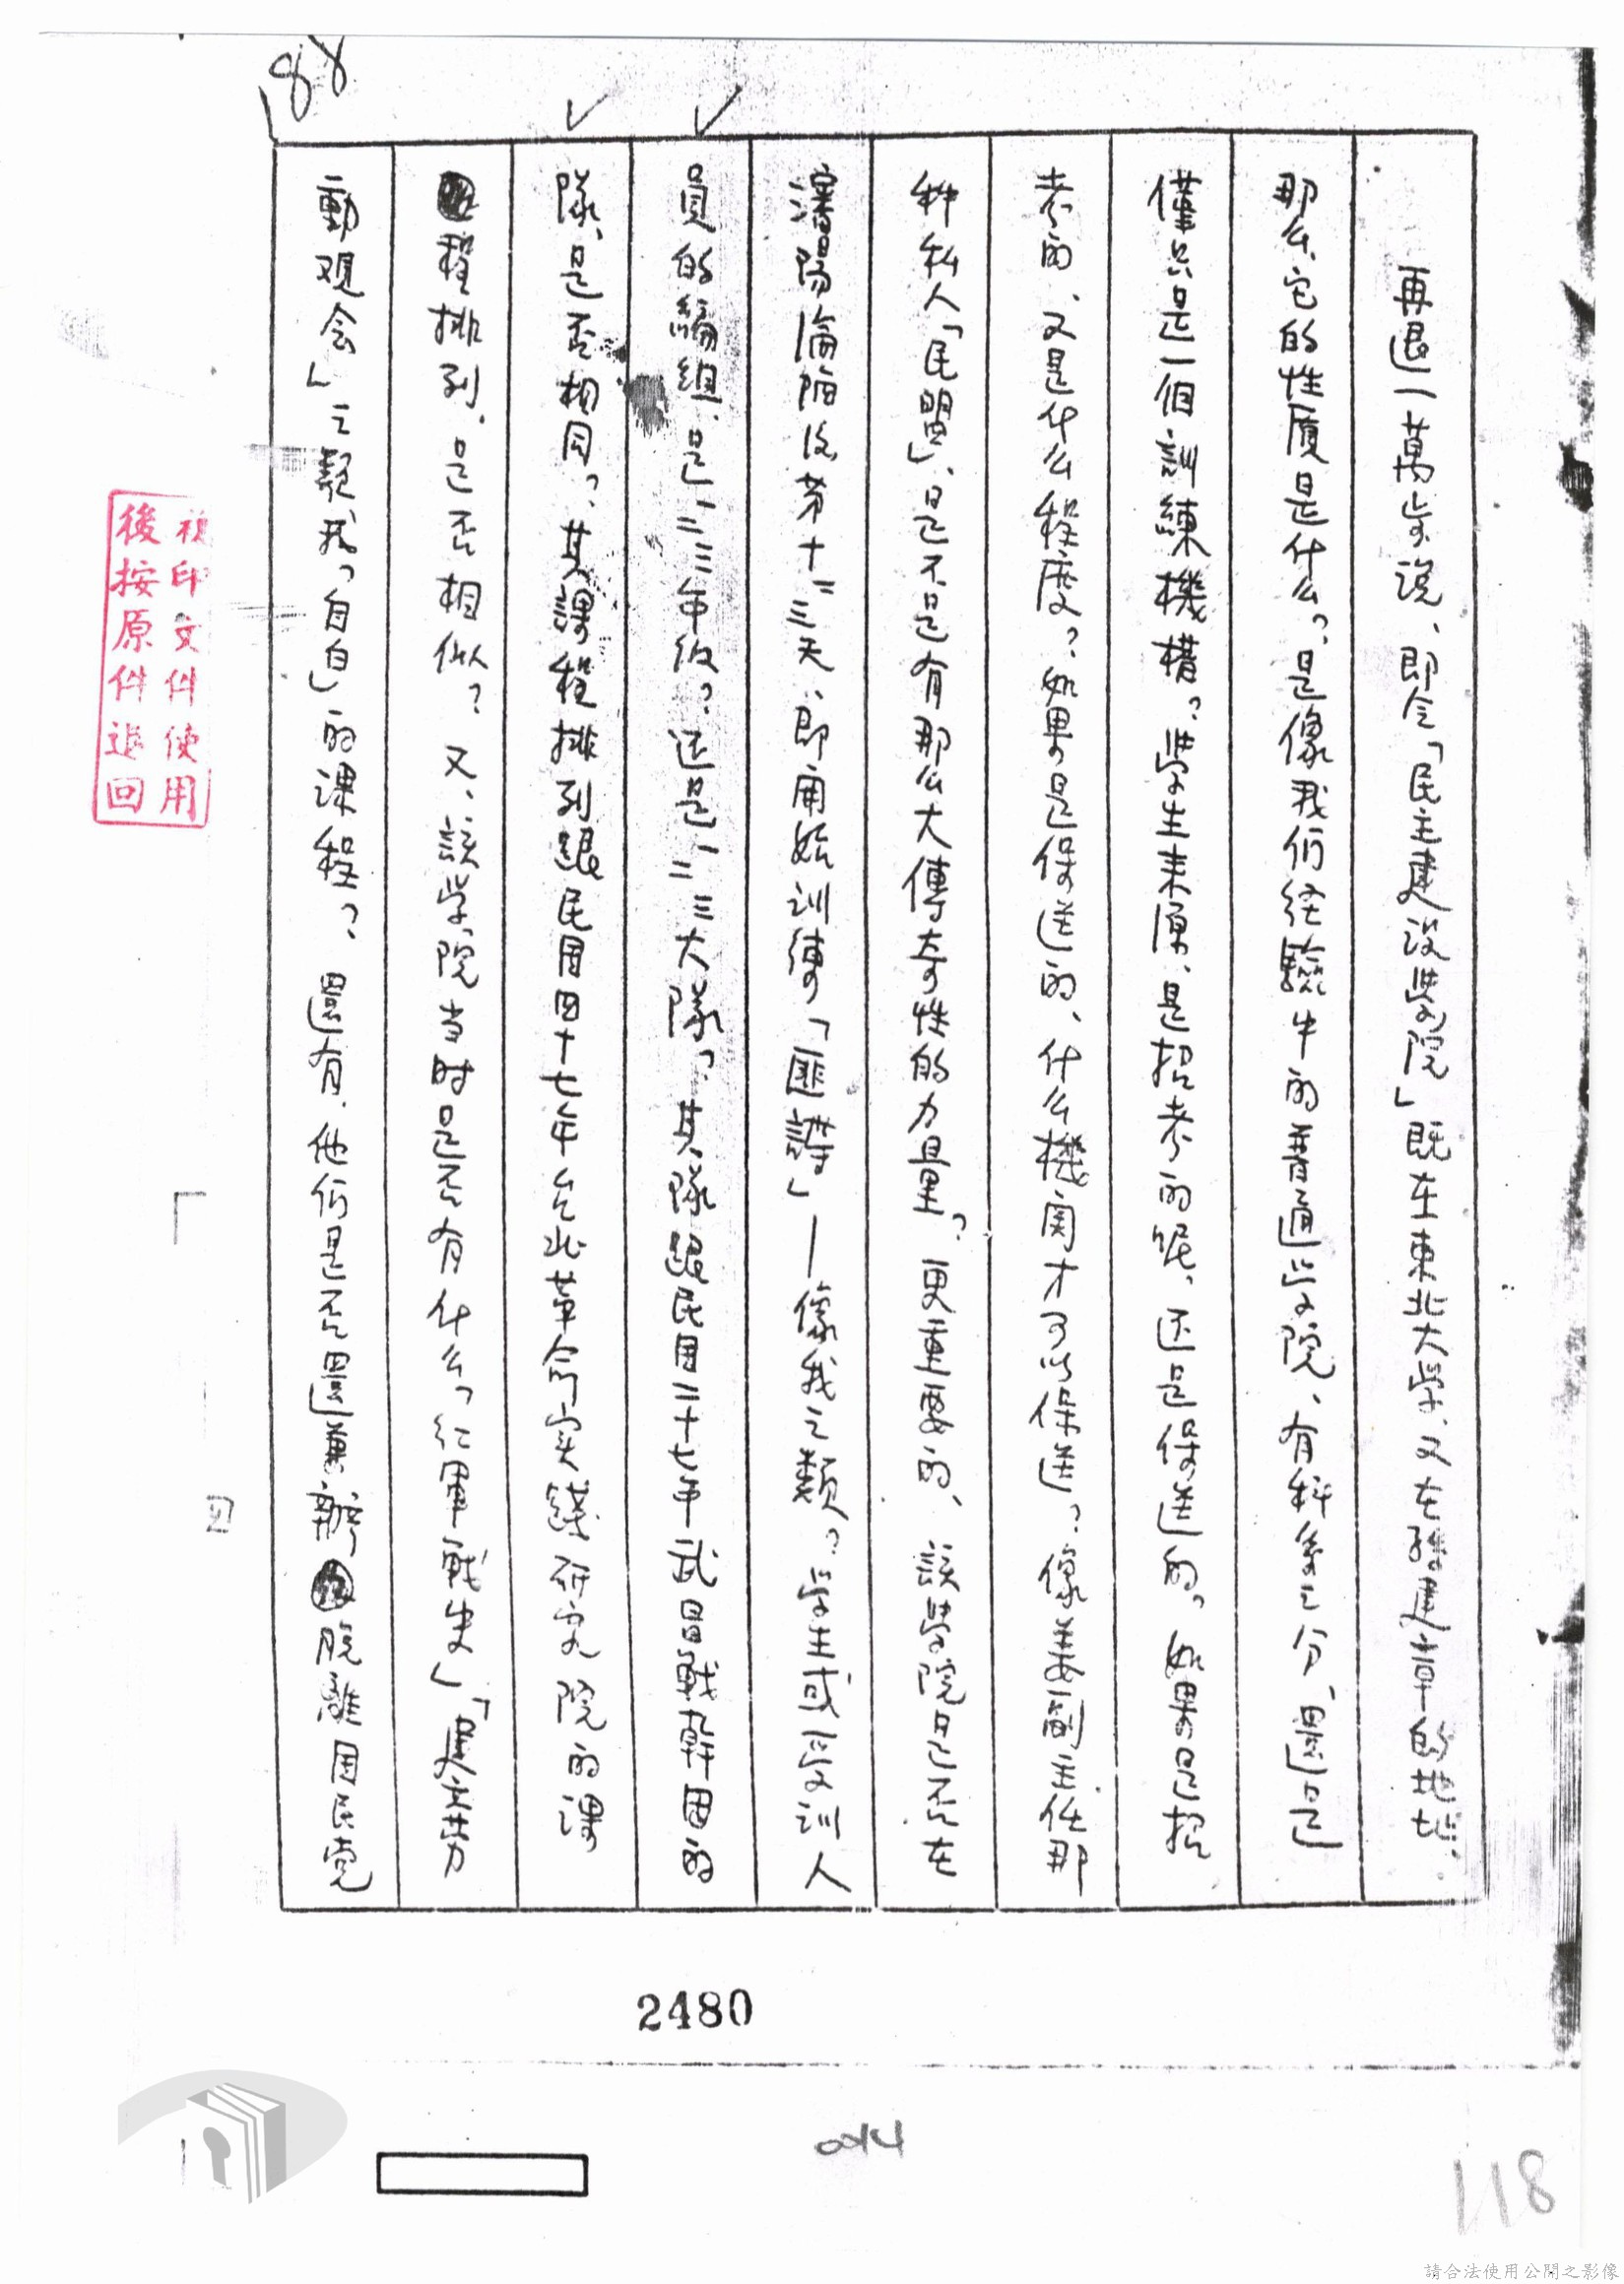 88
再退一萬步说、即令「民主建设学院」既在東北大学、又在孫建章的地址、
那么、它的性质是什么？是像我们经驗中的普通学院、有科系之分、還是
僅只是一個訓練機構？学生来源、是招考的呢、还是保送的。如果是招
考的、又是什么程度？如果是保送的、什么機関才可以保送？像姜副主任那
种私人「民盟」、是不是有那么大傳奇性的力量？更重要的、該学院是否在
瀋陽淪陷後第十二三天、即開始训練「匪諜」—像我之類？学生或受训人
員的編組、是一二三年级？还是一二三大隊？其隊跟民国二十七年武昌戰幹团的
隊、是否相同？其課程排列跟民国四十七年台北革命实践研究院的課
程排列、是否相似？又、該学院当时是否有什么「红軍戦史」「建立劳
動观念」之類我「自白」的课程？還有、他们是否還兼辦脱離国民党
複印文件使用
後按原件退回
2480
0014
118
請合法使用公開之影像